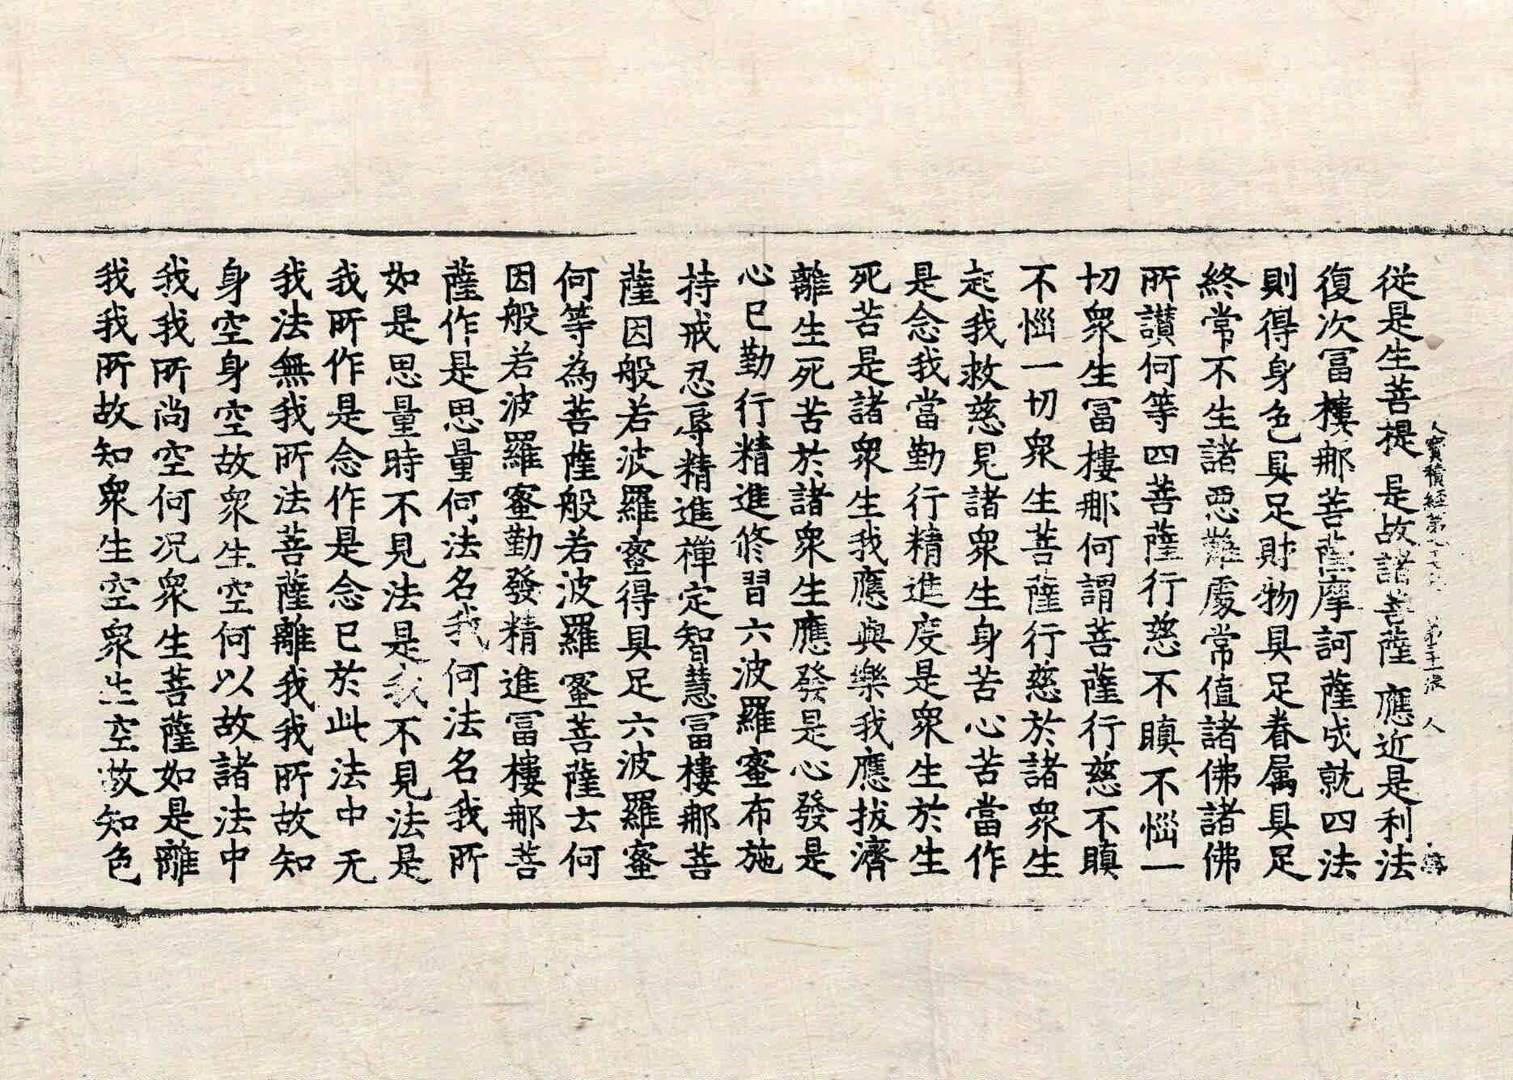 從是生菩提是故諸菩薩應近是利法
大寶積經第七十七 第二十一張 人
復次富樓那菩薩摩訶薩成就四法
則得身色具足財物具足眷属具足
終常不生諸惡難處常值諸佛諸佛
所讃何等四菩薩行慈不瞋不惱一
切衆生富樓那何謂菩薩行慈不瞋
不惱一切衆生菩薩行慈於諸衆生
起我救慈見諸衆生身苦心苦當作
是念我當勤行精進度是衆生於生
死苦是諸衆生我應與樂我應拔濟
離生死苦於諸衆生應發是心發是
心已勤行精進修習六波羅蜜布施
持戒忍辱精進禪定智慧富樓那菩
薩因般若波羅蜜得具足六波羅蜜
何等為菩薩般若波羅蜜菩薩云何
因般若波羅蜜勤發精進富樓那菩
薩作是思量何法名我何法名我所
如是思量時不見法是我不見法是
我所作是念作是念已於此法中无
我法無我所法菩薩離我我所故知
身空身空故衆生空何以故諸法中
我我所尚空何况衆生菩薩如是離
我我所故知衆生空衆生空故知色